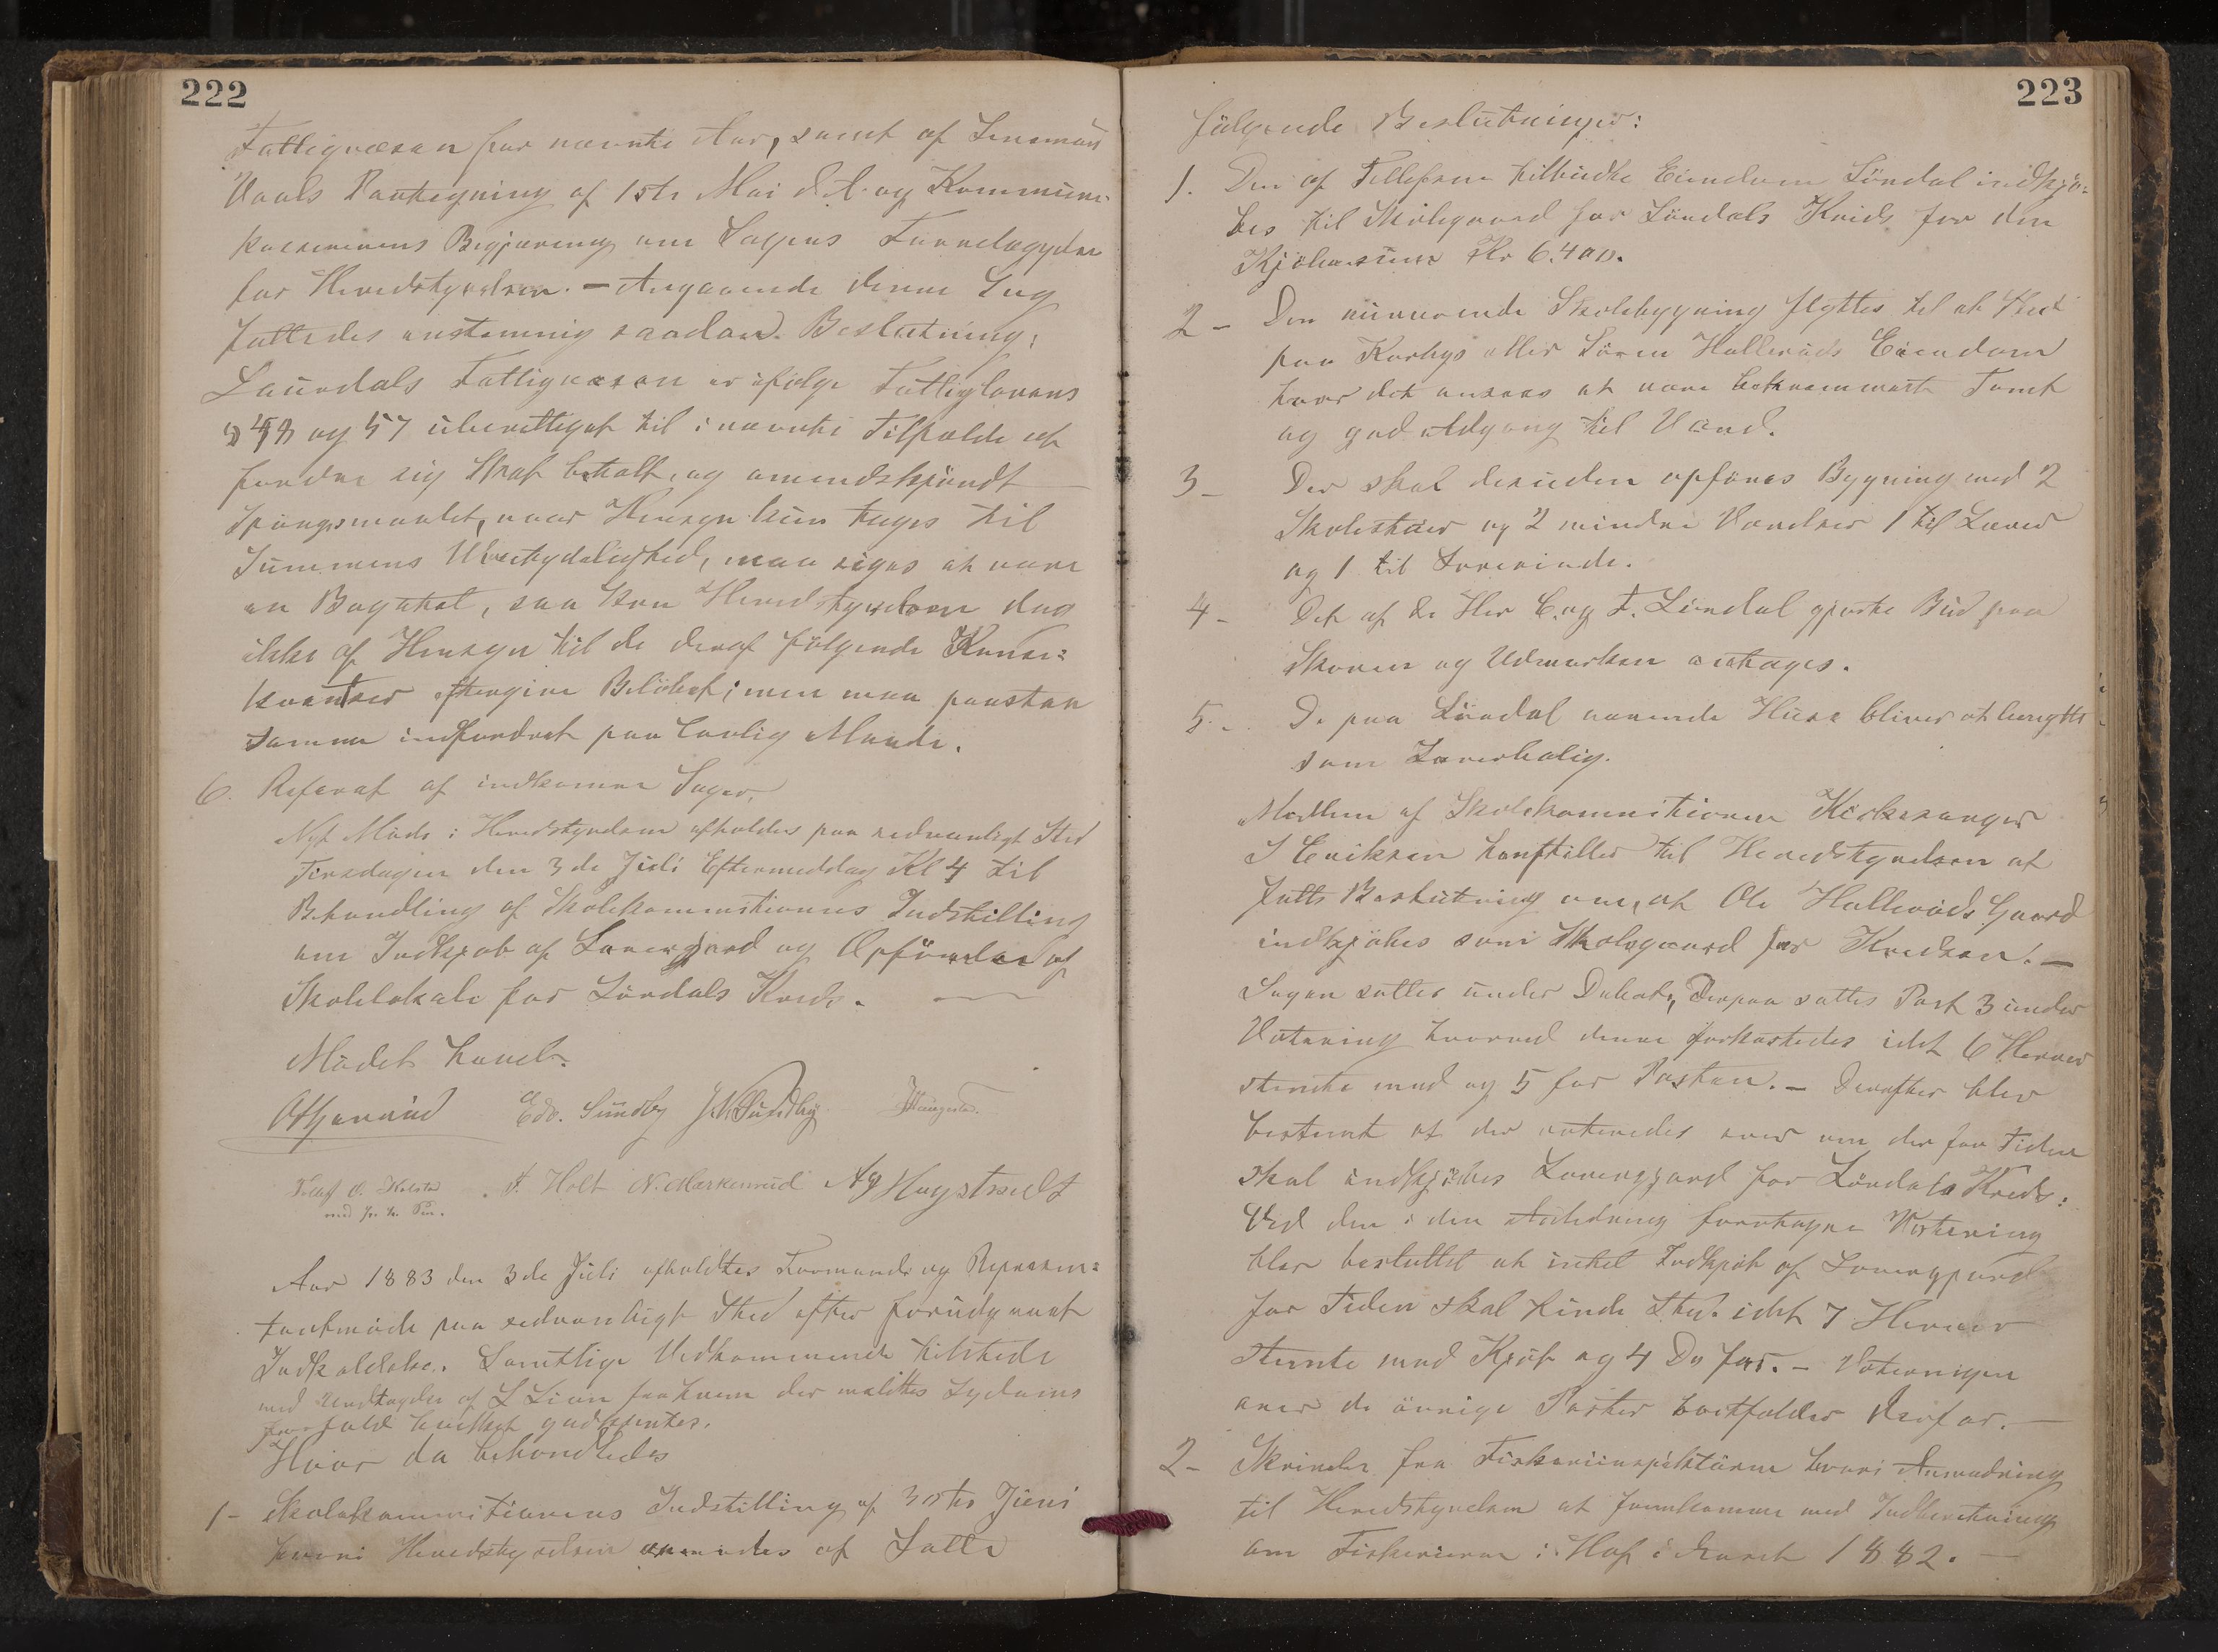 222
Fattigvæsen for nævnte Aar, samt af Lensmand
Vaals Paategning af 15de Mai d.A. og Kommune-
kassererens Begjæring om Sagens Foredragelse
for Herredstyrelsen. – Angaaende denne Sag
fattedes enstemmig saadan Beslutning:
Laurdals Fattigvæsen er ifølge Fattiglovens
og 57 uberettiget til i nævnte Tilfælde at
fordre sig Skat betalt, og omendskjöndt
Spörgsmaalet, naar Hensyn kun tages til
Summens Ubetydelighed, maa siges at være
en Bagatel, saa kan Herredstyrelsen dog
ikke af Hensyn til de deraf fölgende Konse=
kventser eftergive Belöbet; men maa paastaa
samme indfordret paa lovlig Maade.
6. Referat af indkomne Sager.
Nyt Möde i Herredstyrelsen afholdes paa sedvanligt Sted
Tirsdagen den 3de Juli Eftermiddag Kl 4 til
Behandling af Skolekommissionens Indstilling
om Indkjøb af Lærergjord og Opförelse af
Skolelokale for Löndals Kreds.
Mödet hævet.
Edv. Sundby J. N. Sundby
Kolstad A. Holt N. Markerud
med p. P.
Aar 1883 den 3de Juli afholdtes Formands og Repræsen=
tantmöde paa sedvanligt Sted efter forudgaaet
Indkaldelse. Samtlige Vedkommende tilstede
med Undtagelse af L Lian fra hvem der meldtes Sygdoms
forfald hvilket godkjentes.
Hvor da behandledes
1- Skolekommissionens Indstilling af 30te Juni
hvori Herredstyrelsen anmodes at fatte
223
fölgende Beslutninger:
1. Den af Tellefsen tilbudte Eiendom Löndal indkjö=
bes til Skolegaard for Löndals Kreds for den
Kjöbesum Kr 6.400.
2- Den nuværende Skolebygning flyttes til et Sted
paa Korbys eller Sören Halleruds Eiendom
hvor det ansees at være bekvemmest Tomt
og god Adgang til Vand.
3- Der skal desuden opföres Bygning med 2
Skolestuer og 2 mindre Værelser 1 til Lærer
og 1 til Lærerinde.
4- Det af de Her C. og F. Löndal gjorte Bud paa
Skoven og Udmarken antages.
5.- De paa Löndal værende Huse bliver at benytte
som Lærerbolig.
Medlem af Skolekommissionen Kirkesanger
J Eriksen henstiller til Herredstyrelsen at
fatte Beslutning om, at Ole Halleruds Gaard
indkjöbes som Skolegaard for Kredsen. –
Sagen sattes under Debat, Derpaa sattes Post 3 under
Votering hvorved denne forkastedes idet 6 Herrer
stemte mod og 5 for Posten. – Derefter blev
bestemt at der voteredes over om der for Tiden
skal indkjöbes Lærergjord for Löndals Kreds:
Ved den i den Anledning foretagne Votering
blev besluttet at intet Indkjöb af Lærergjord
for Tiden skal finde Sted idet 7 Herrer
stemte mod Kjöb og 4 Do for. – Voteringen
over de övrige Poster bortfalder derfor. –
2- Skrivelse fra Fiskeriinspektören hvori Anmodning
til Herredstyrelsen at fremkomme med Indberetning
om Fiskerierne i Hof i Aaret 1882. –